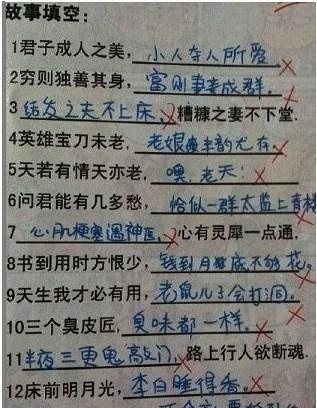 故事填空：
1君子成人之美，小人夺人所爱
2穷则独善其身，富则妻妾成群。
3结发之夫不上床，糟糠之妻不下堂.
4英雄宝刀未老，老娘丰韵尤存。
5天若有情天亦老，嘿，老天：
6问君能有几多愁，恰似一群太监上青楼
7心肌梗塞遇神医，心有灵犀一点通，
8书到用时方恨少，钱到月底不够花。
9天生我才必有用，老鼠儿子会打洞。
10三个臭皮匠，臭味都一样。
11半夜三更鬼敲门，路上行人欲断魂.
12床前明月光，李白睡得香。